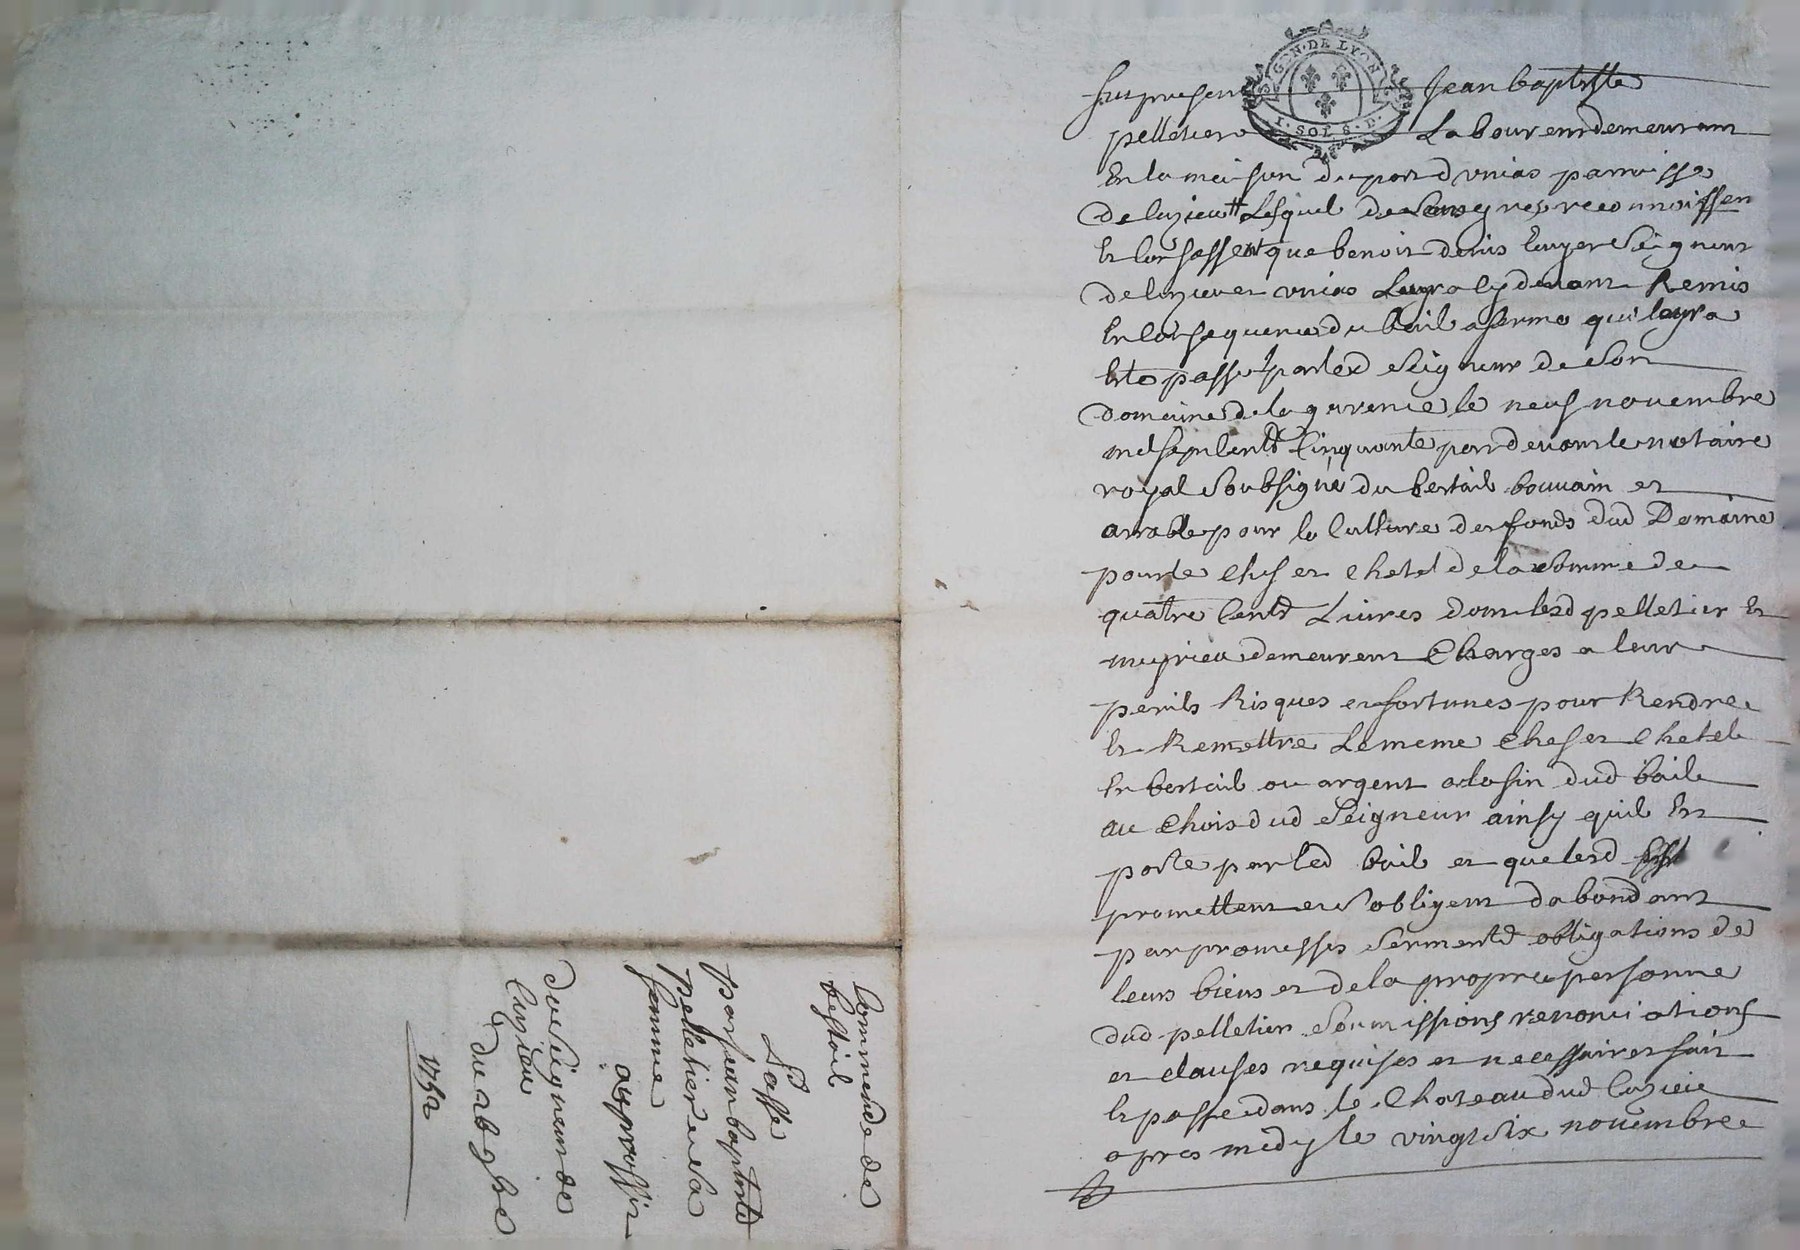 GN. DE LYON
I. SOL 8. D.
fut present Jean baptiste
pelletier Laboureur demeurant
En la maison du port d unias parroisse
de luzieu Lesquel de Leurs gres reconnoissen
Et confessent que benoit denis Ecuyer Seigneur
de luzieu et unias Leur a cy devant Remis
En consequence du bail a ferme qui leur a
Ete passe par led Seigneur de Son
domaine de la garenne le neuf novembre
mil sept cent Cinquante par devant le notaire
royal Soubsigné du bestail bouvain et
arrable pour la Culture des fonds dud Domaine
pour le Chef et Chetel de la Somme de
quatre Cent Livres dont lesd pelletier Et
meyrieu demeurent Charges a leur
perils Risques et fortunes pour Rendre
Et Remettre Le meme Chef et Chetel
En bestail ou argent a la fin dud bail
au Choix dud Seigneur ainsy quil Est
porte par led bail et que lesd
promettent et S obligent dabondant
par promesses Serment obligations de
leurs biens et de la propre personne
dud pelletier Soumissions renonciations
et clauses requises et necessaires fait
Et passe dans le Chateau dud luzieu
apres midy le vingt Six novembre
Commende de
bestail
Passe
par jean baptiste
pelletier et sa
femme
au proffit
du Seigneur de
luzieu
du 26 9bre
1752